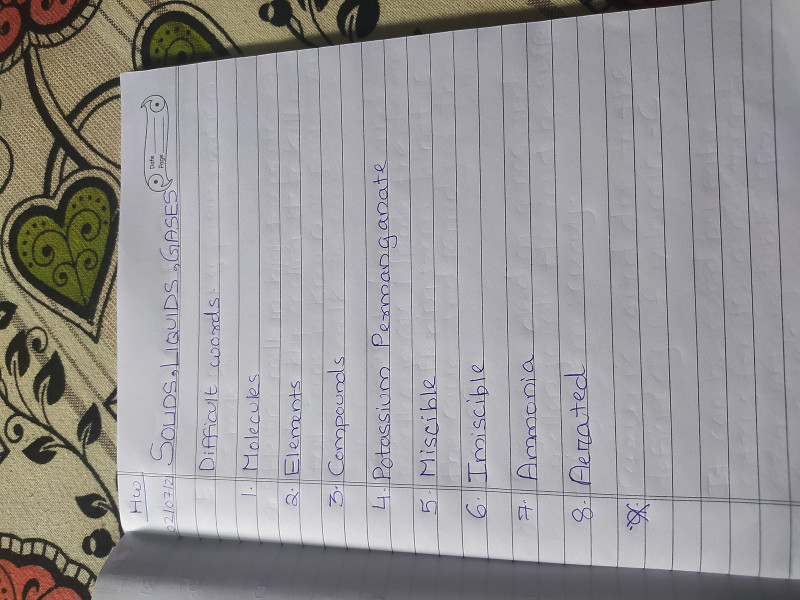 HW
Date
Page
02/07/2
SOLIDS, LIQUIDS, GASES
Difficult words.
1. Molecules
2. Elements
3. Compounds
4. Potassium Permanganate
5. Miscible
6. Imiscible
7. Ammonia
8. Aerated